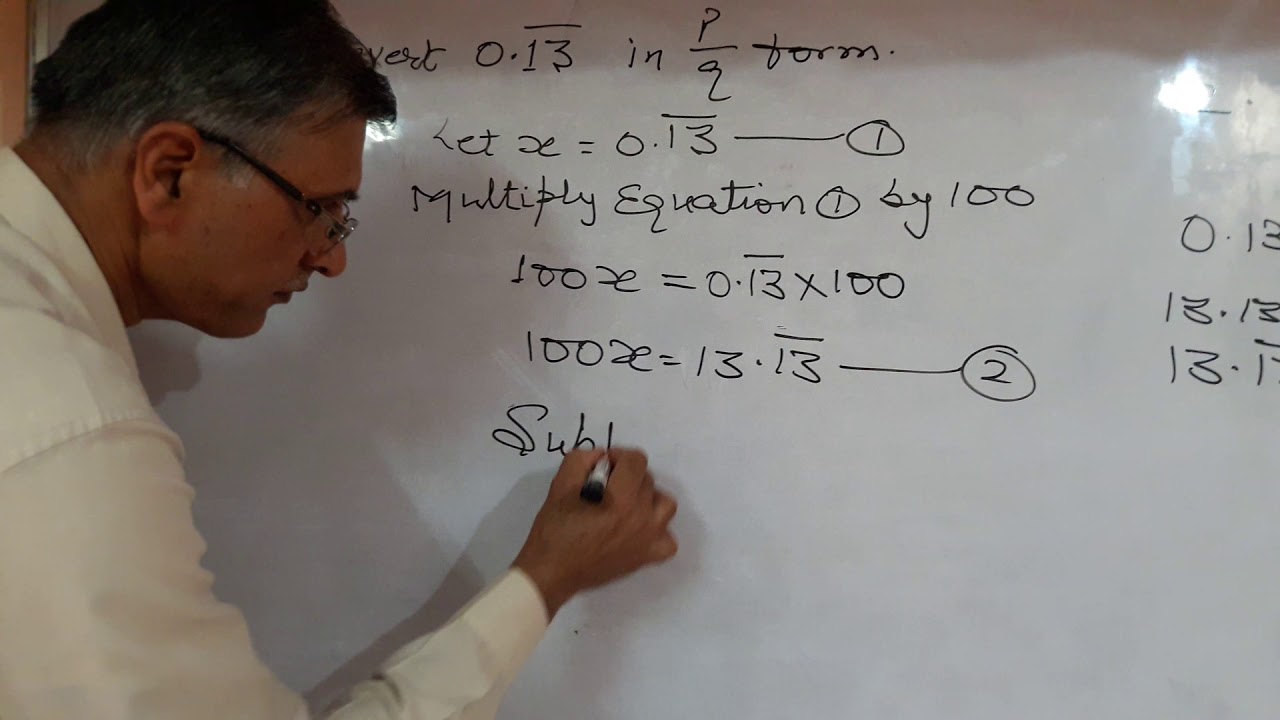 vert 0.1̅3̅ in p/q form.
Let x = 0.1̅3̅ ——— ①
Multiply Equation ① by 100
100x = 0.1̅3̅ × 100
100x = 13.1̅3̅ ——— ②
Sub
0.13
13.13
13.1̅